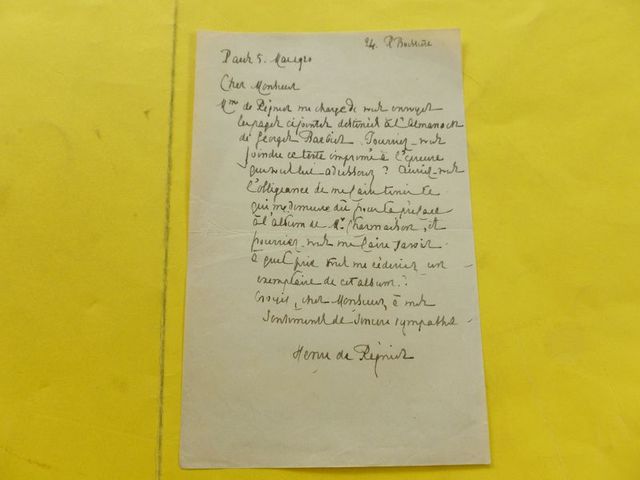 24. R Boissière
Paris 5. Mars 1920
Cher Monsieur
Mme de Régnier me charge de vous envoyer
les pages ci jointes destinées à l'Almanach
de George Barbier. Pourriez-vous
joindre ce texte imprimé à l'épreuve
que vous lui adressez ? Auriez-vous
l'obligeance de me faire tenir ce
qui me demeure dû pour la préface
à l'album de Mr Charmaison, et
pourriez-vous me faire savoir
à quel prix vous me céderiez un
exemplaire de cet album ?
Croyez, cher Monsieur, à mes
sentiments de sincère sympathie
Henri de Régnier